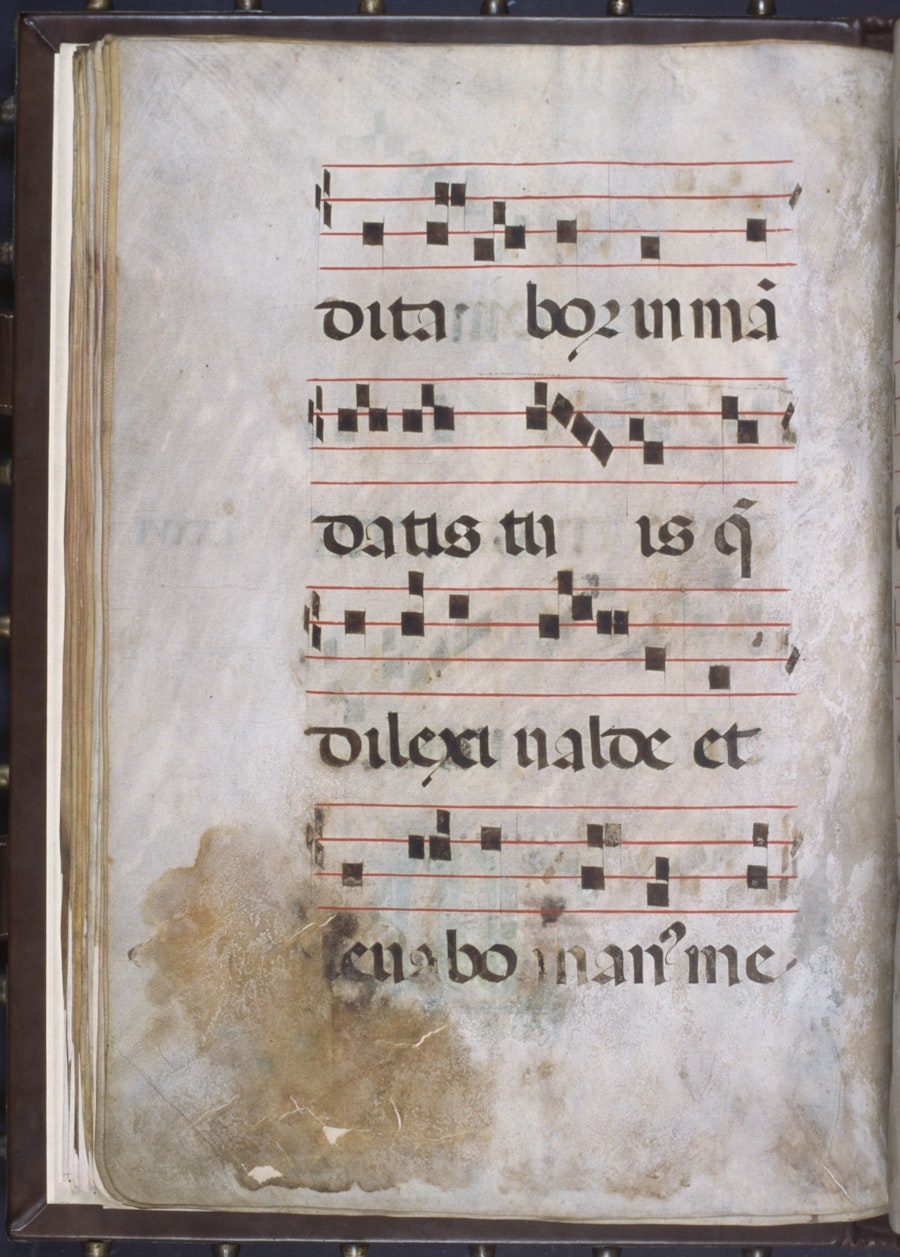 dita bor in mā
datis tu is q̄
dilexi ualde et
leuabo manꝰ me